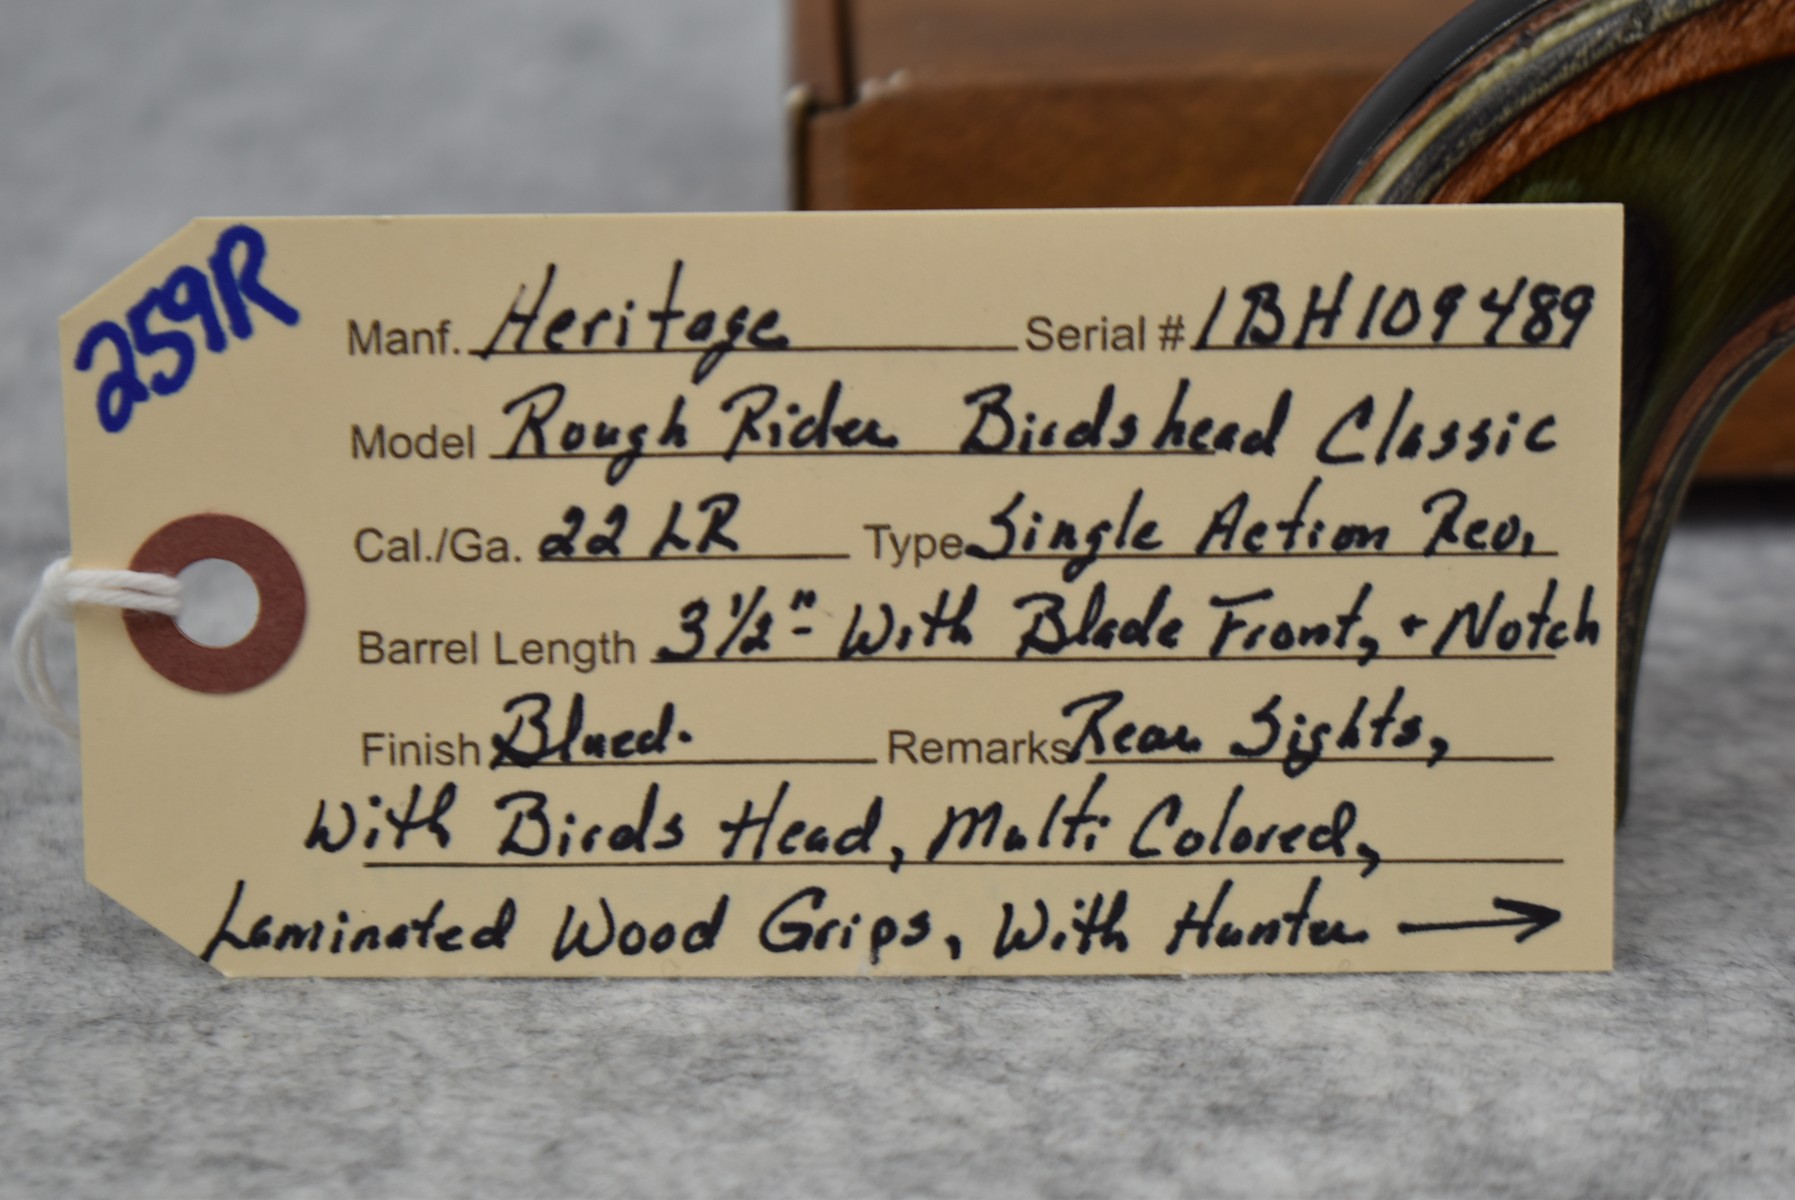 259R
Manf. Heritage Serial # 1BH109489
Model Rough Rider Birdshead Classic
Cal./Ga. 22 LR Type Single Action Rev.
Barrel Length 3 1/2" - With Blade Front, + Notch
Finish Blued. Remarks Rear Sights,
With Birds Head, Multi Colored,
Laminated Wood Grips, With Hunter →